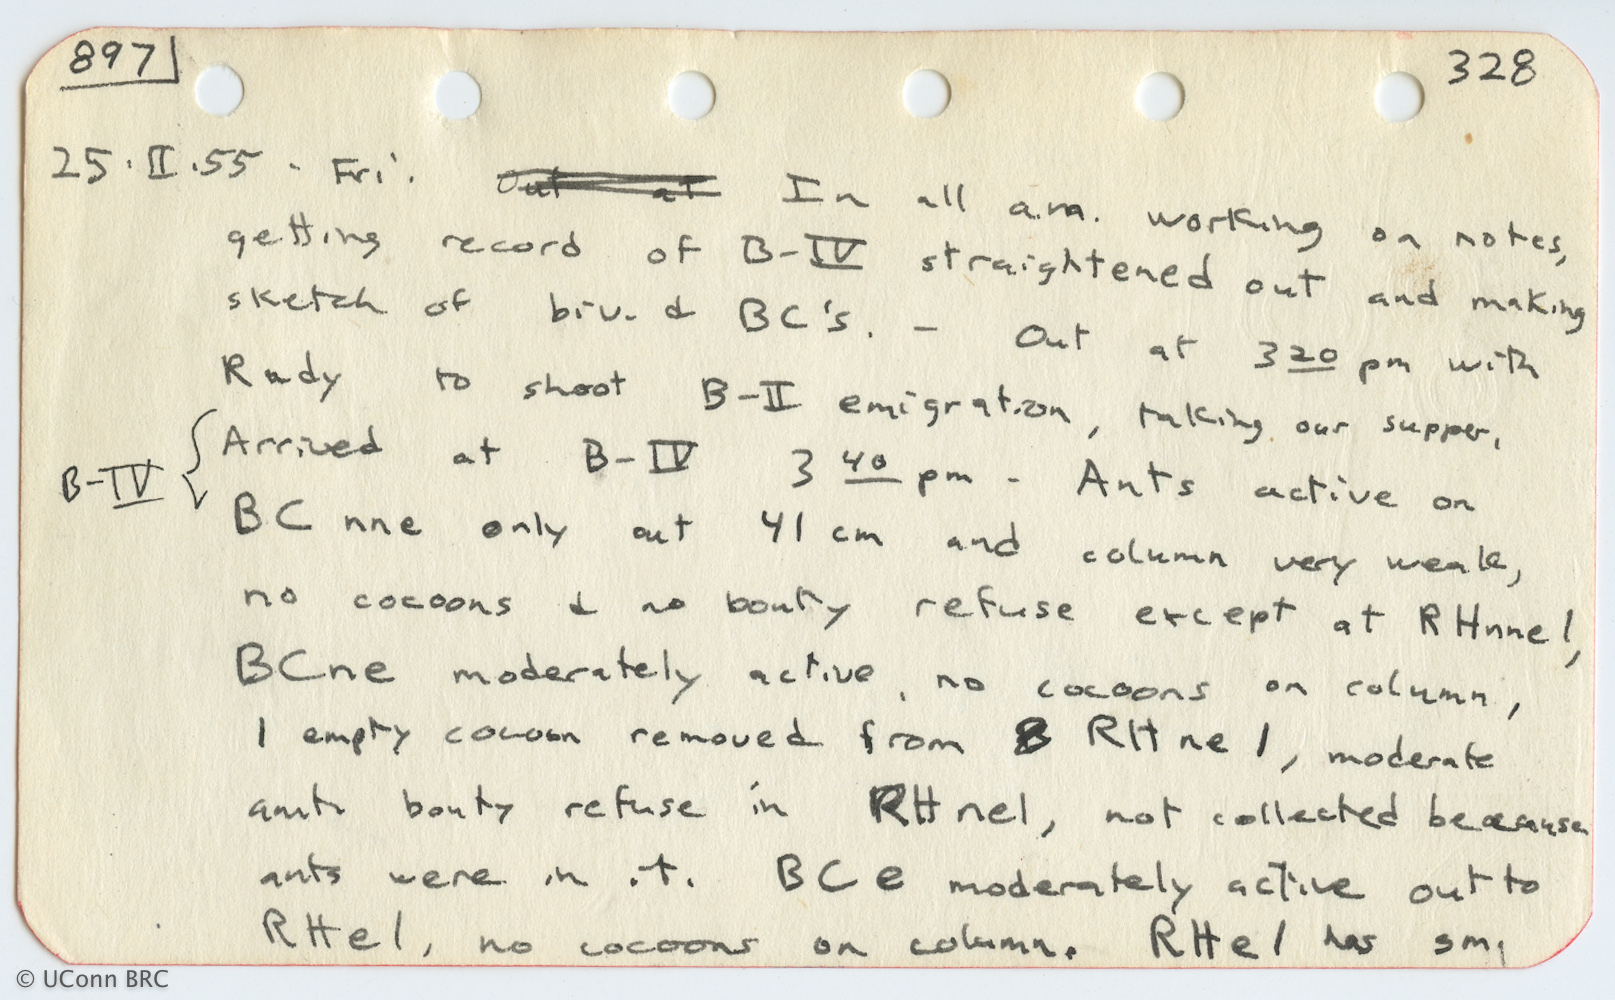 897 328
25·II·55 - Fri. Out at In all a.m. working on notes,
getting record of B-IV straightened out and making
sketch of biv. & BC's. - Out at 3 20 pm with
Rudy to shoot B-II emigration, taking our supper,
B-IV Arrived at B-IV 3 40 pm - Ants active on
BC nne only out 41 cm and column very weak,
no cocoons & no booty refuse except at RHnne1,
BCne moderately active, no cocoons on column,
1 empty cocoon removed from RHne1, moderate
amt. booty refuse in RHne1, not collected because
ants were in it. BCe moderately active out to
RHe1, no cocoons on column. RHe1 has sml
© UConn BRC